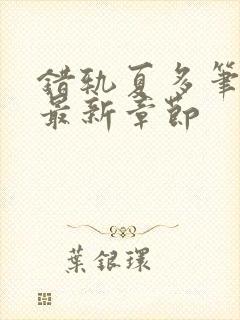 錯軌夏多筆
最新章節
葉銀環